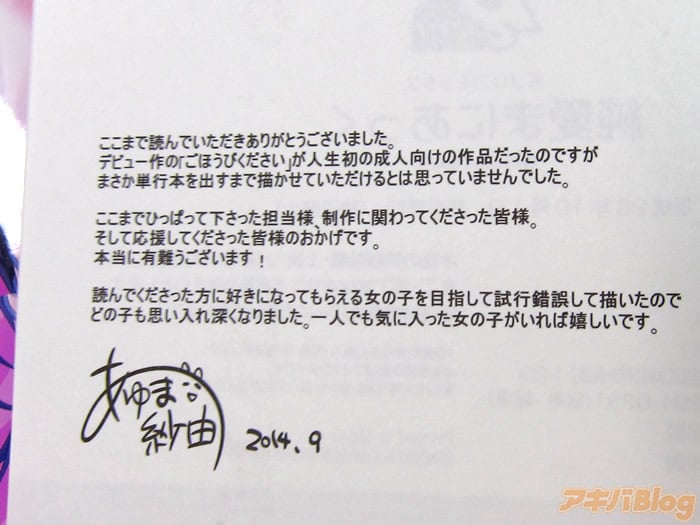 ここまで読んでいただきありがとうございました。
デビュー作の「ごほうびください」が人生初の成人向けの作品だったのですが
まさか単行本を出すまで描かせていただけるとは思っていませんでした。
ここまでひっぱって下さった担当様、制作に関わってくださった皆様。
そして応援してくださった皆様のおかげです。
本当に有難うございます！
読んでくださった方に好きになってもらえる女の子を目指して試行錯誤して描いたので
どの子も思い入れ深くなりました。一人でも気に入った女の子がいれば嬉しいです。
あゆま
紗由
2014.9
アキバBlog